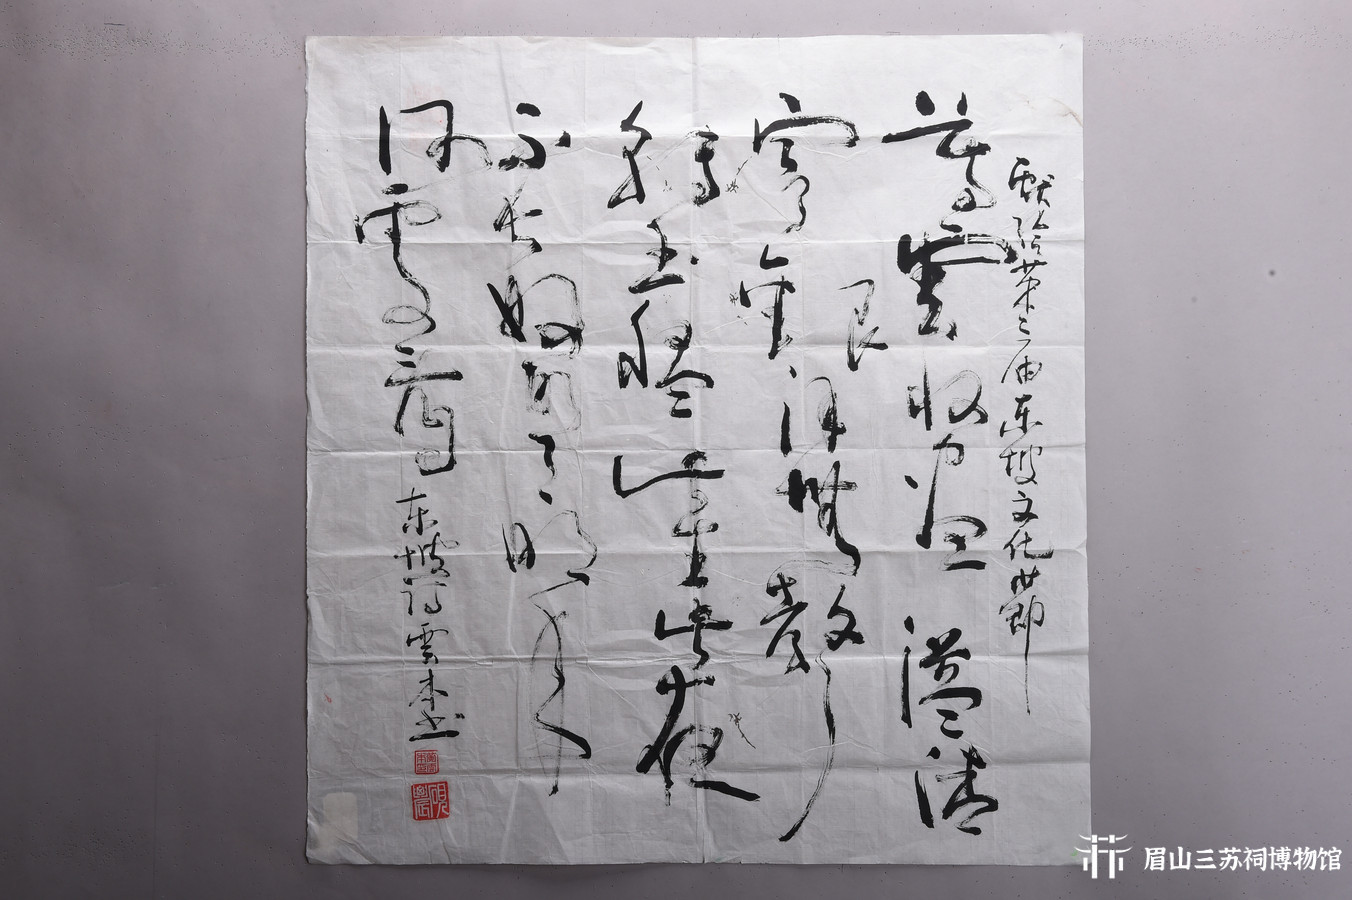 献给第届东坡文化节
暮雲收尽溢清
寒银汉無聲
转玉盘此生此夜
不长好明月明年
何處看
东坡诗 雲 书
眉山三苏祠博物馆